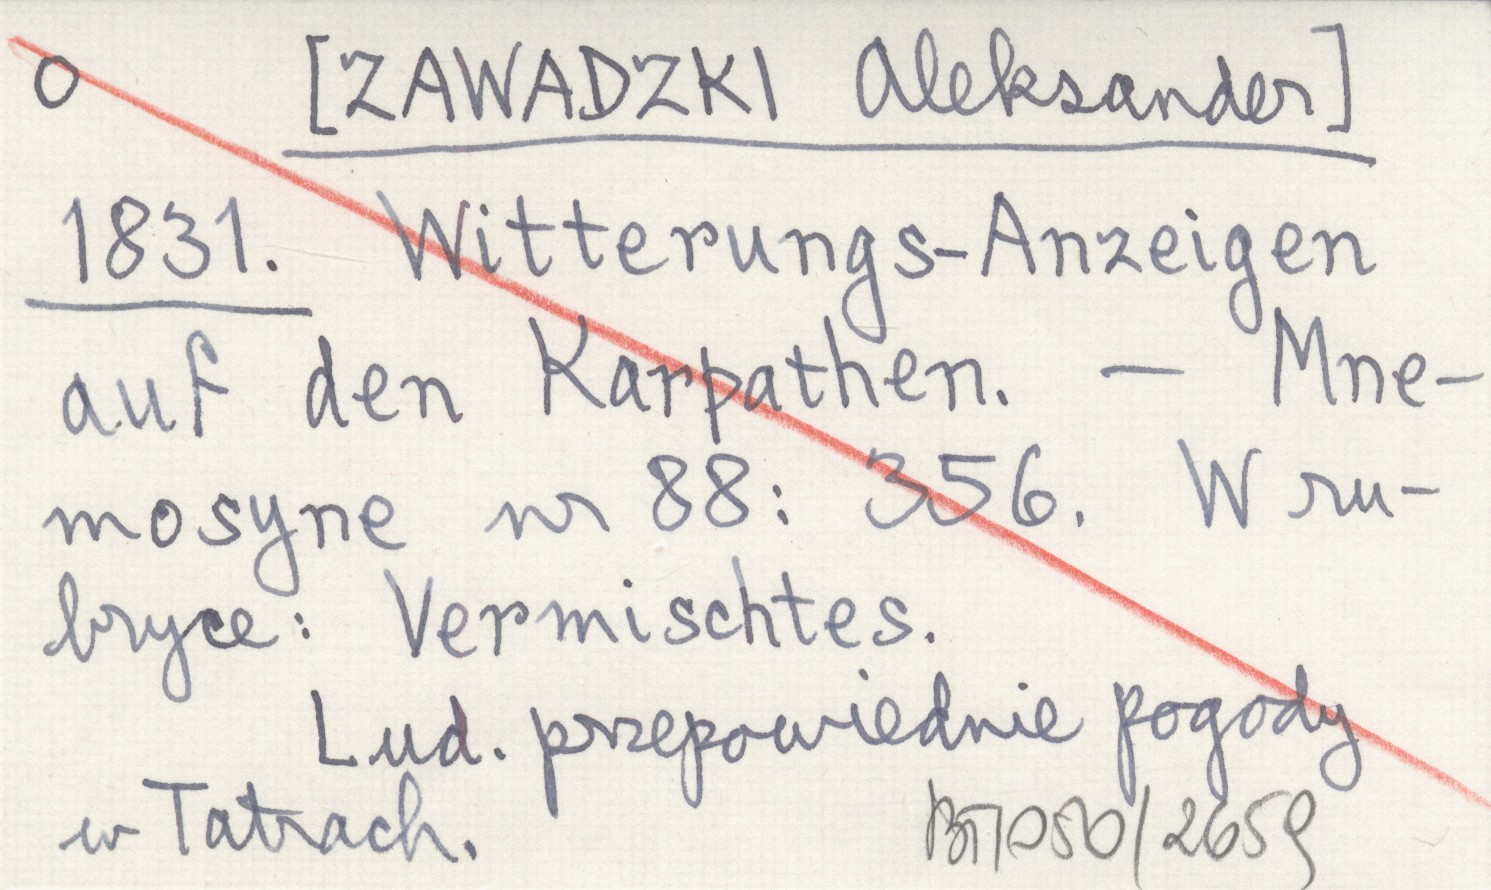 o [ZAWADZKI Aleksander]
1831. Witterungs-Anzeigen
auf den Karpathen. — Mne-
mosyne nr 88: 356. W ru-
bryce: Vermischtes.
Lud. przepowiednie pogody
w Tatrach.
/2659